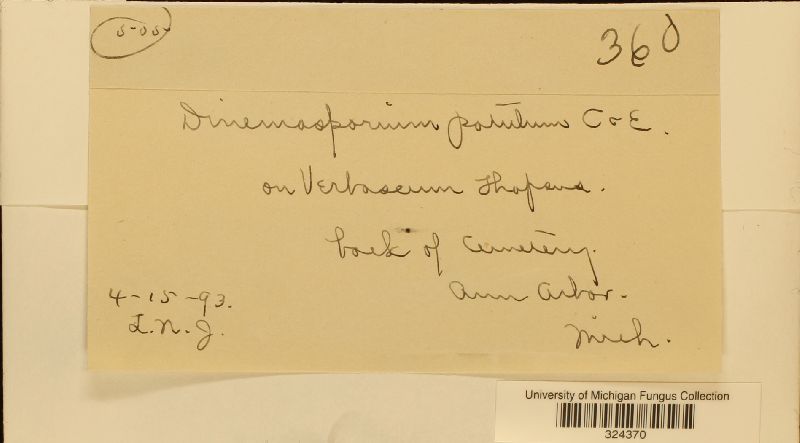 5-05
360
Dinemasporium patulum C & E.
on Verbascum Thapsus.
back of Cemetery.
Ann Arbor.
Mich.
4-15-93.
L.N.J.
University of Michigan Fungus Collection
324370